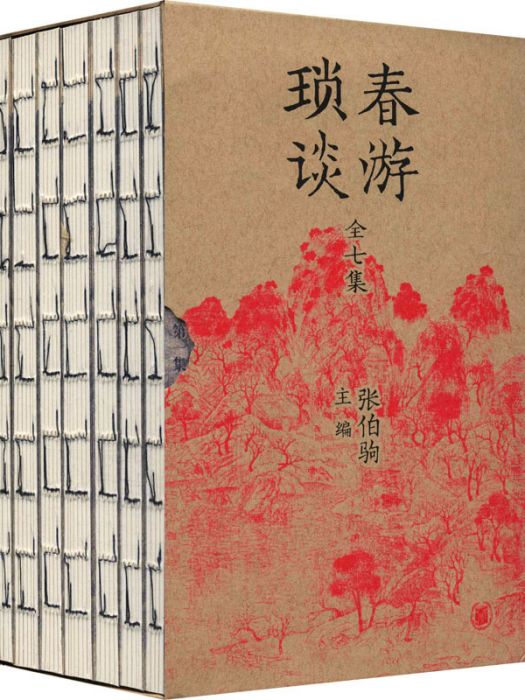 春游
琐谈
全七集
张伯驹
主编
第一集